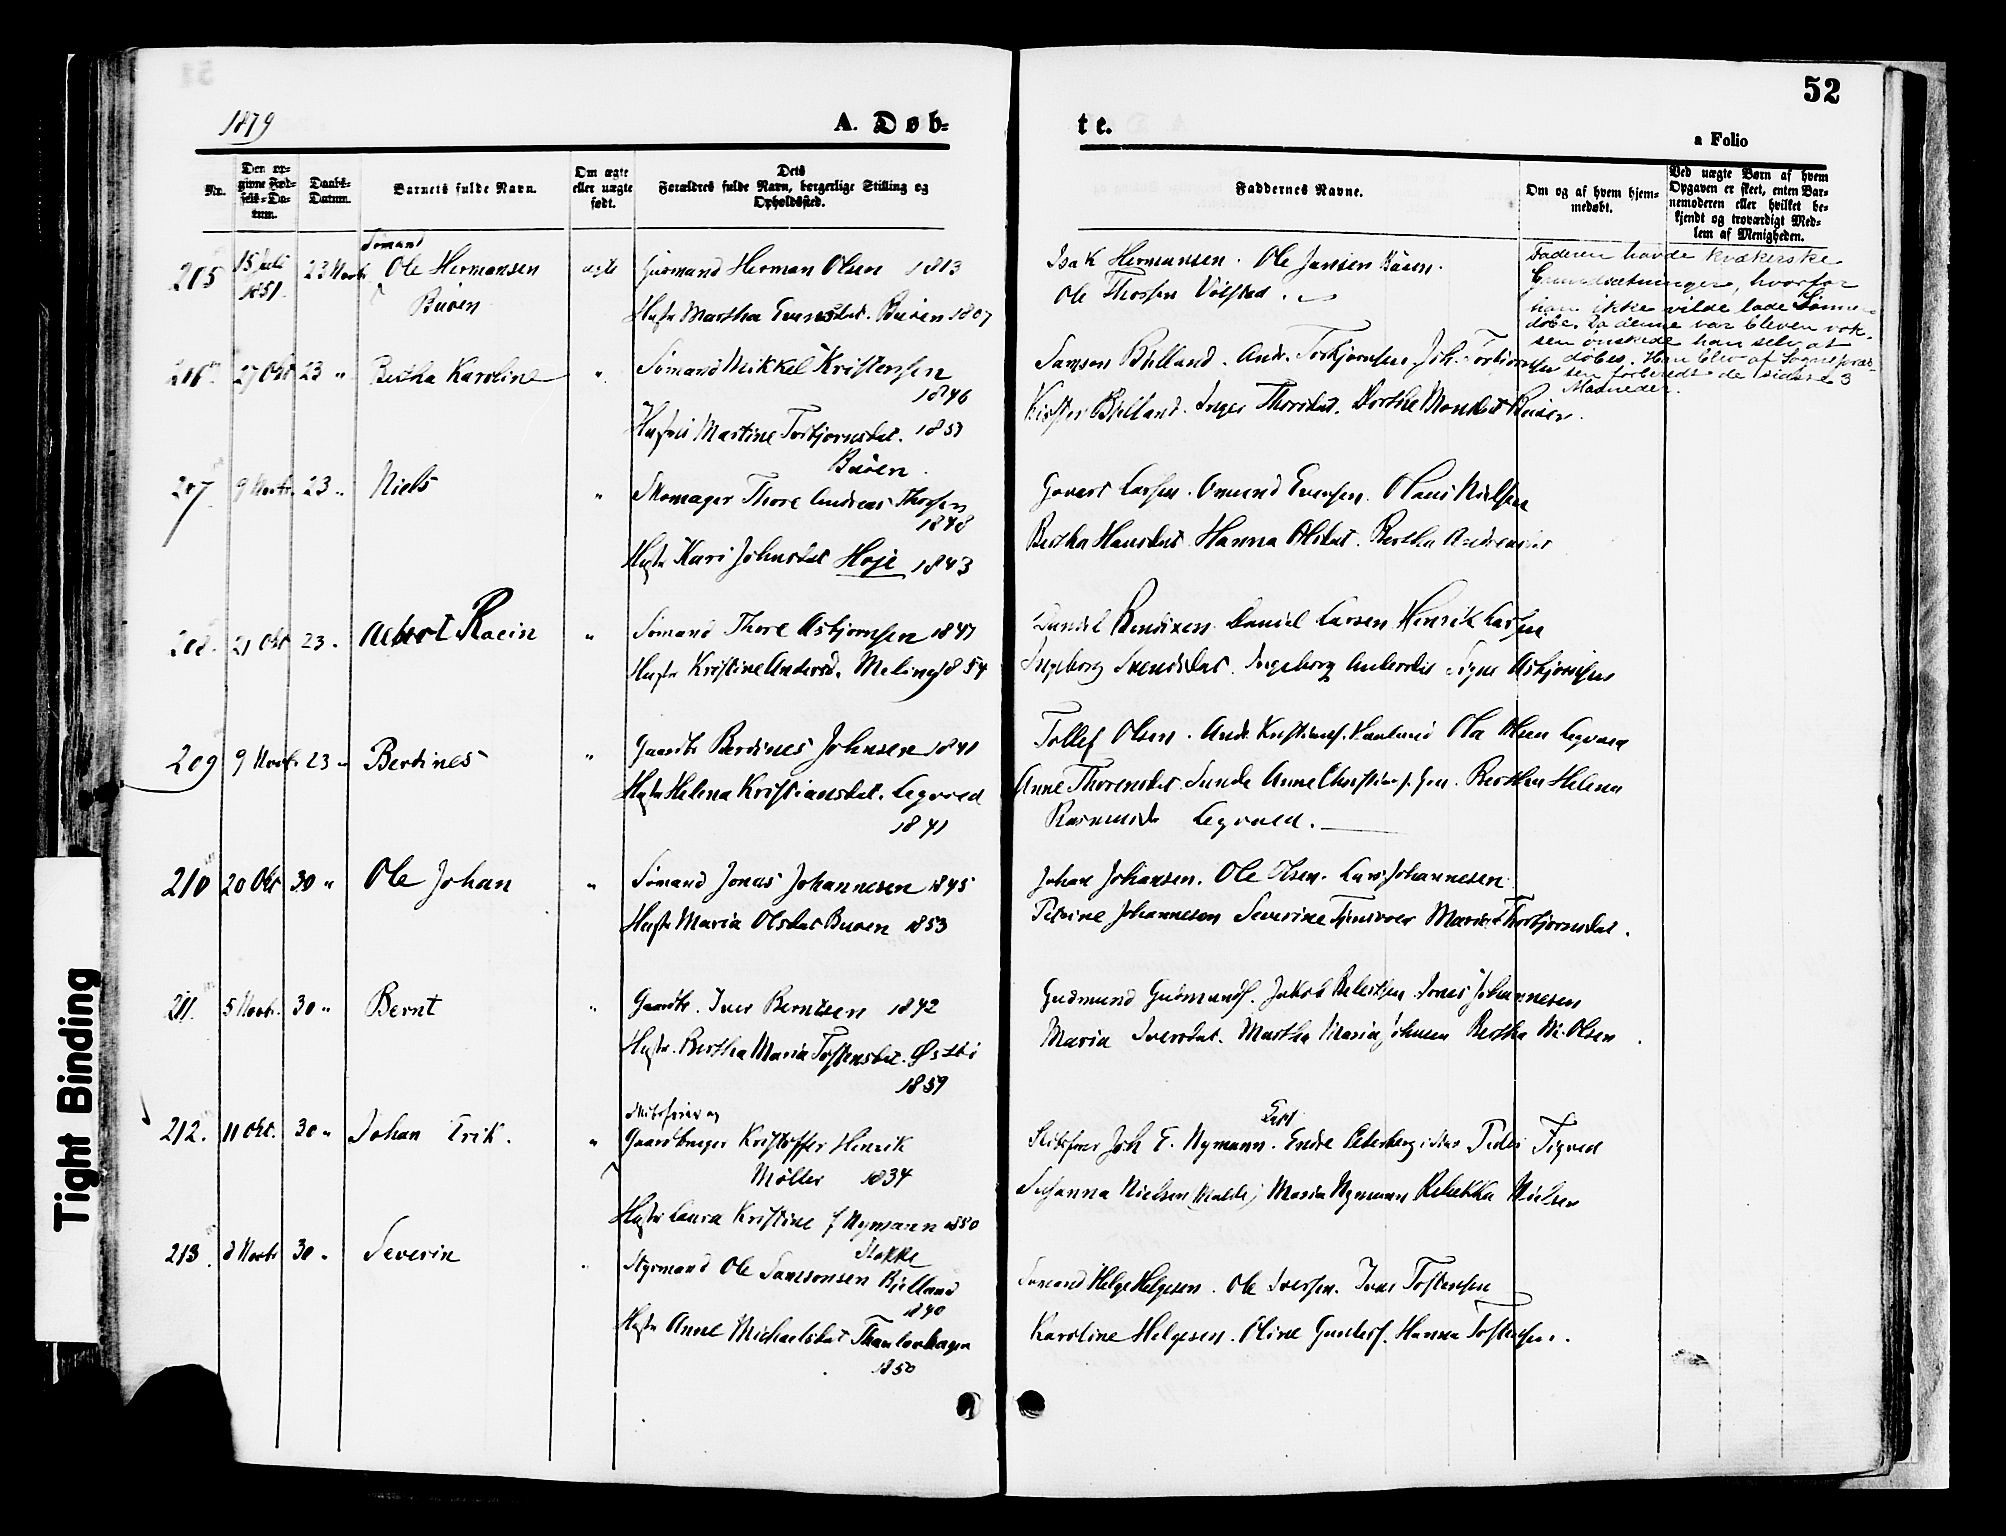 52
1879
A. Døb-
te.
a Folio
Nr.
Den op-
givne Fød-
sels-Da-
tum.
Daabs-
Datum.
Barnets fulde Navn.
Om ægte
eller uægte
født.
Dets
Forældres fulde Navn, borgerlige Stilling og
Opholdssted.
Faddernes Navne.
Om og af hvem hjem-
medøbt.
Ved uægte Børn af hvem
Opgaven er skeet, enten Bar-
nemoderen eller hvilket be-
kjendt og troværdigt Med-
lem af Menigheden.
205 15 Juli 1851 23 Novbr Sømand Ole Hermansen Buøen ægte
Herman Olsen 1813
Hustr Martha Buøen 1807
Isak Hermansen. Ole Jansen Buøen.
Ole Thorsen
Faderen havde kvækerske
Grundsætninger, hvorfor
han ikke vilde lade Sønnen
døbe. Da denne var bleven vok-
sen ønskede han selv at
døbes. Han blev af Sognepræ-
sten forberedt de sidste 3
Maaneder.
206 27 Okt 23 " Bertha Karoline "
Sømand Mikkel Kristensen
1846
Martine Torbjørnsdat. 1853
Buøen.
Samson Bjelland. Andr. Torbjørnsen Joh. Torbjørnsen
Bjelland. Inger Thorsdat. Dorthe Buøen.
207 9 Novbr. 23 " Niels "
Skomager Thore Andreas Thorsen
1848
Hustr Kari Johnsdat Hoje 1843
Govert Larsen. Omund Evensen. Olaus Nielsen
Bertha Hansdat Hanna Olsdat. Bertha
208. 21 Okt 23 " Albert Racin "
Sømand Thore Asbjørnsen 1847
Hustr Kristine Andersd. Meling 1854
Daniel Larsen Henrik Larsen
Ingeborg Svendsdat. Ingeborg Signe Asbjørnsen
209 9 Novbr 23 " Bertines "
Gaardbr Berdines Johnsen 1841
Hustr Helena Kristiansdat. Legvoed
1841
Tollef Olsen. Andr. Ola Olsen
Anne Thorensdat. Sunde Anne Bertha Helena
210 20 Okt 30 " Ole Johan "
Sømand Jonas Johannesen 1845
Hustr Maria Olsdat Buøen 1853
Johan Johansen. Ole Olsen. Lars Johannesen
Petrine Johannesen Severine Thorbjørnsdat.
211. 5 Novbr. 30 " Bernt "
Gaardbr. Iver Berntsen 1842
Hustr. Bertha Maria Tostensdat. Østbø
1859
Gudmund Gudmunds. Jakob Jonas Johannesen
Maria Iversdat. Martha Maria Johnsen Bertha M. Olsen
212. 11 Okt. 30 " Johan Erik. "
Skibsfører og
Gaardbruger Kristoffer Henrik
Møller 1834
Hustr Laura Kristine f Nymann 1850
Stokke
Skibsfører Joh E. Nymann. Endre Peder Tigved
Susanna Nielsen Maria Nymann Rebekka Nielsen
213 8 Novbr 30 " Severin "
Styrmand Ole Samsonsen Bjelland
1840
Hustr Anne Michaelsdat Thaulovhagen
1850
Sømand Helge Helgesen. Ole Iversen. Iver Tostensen
Karoline Helgesen. Oline Hanna Tostensen.
Tight Binding